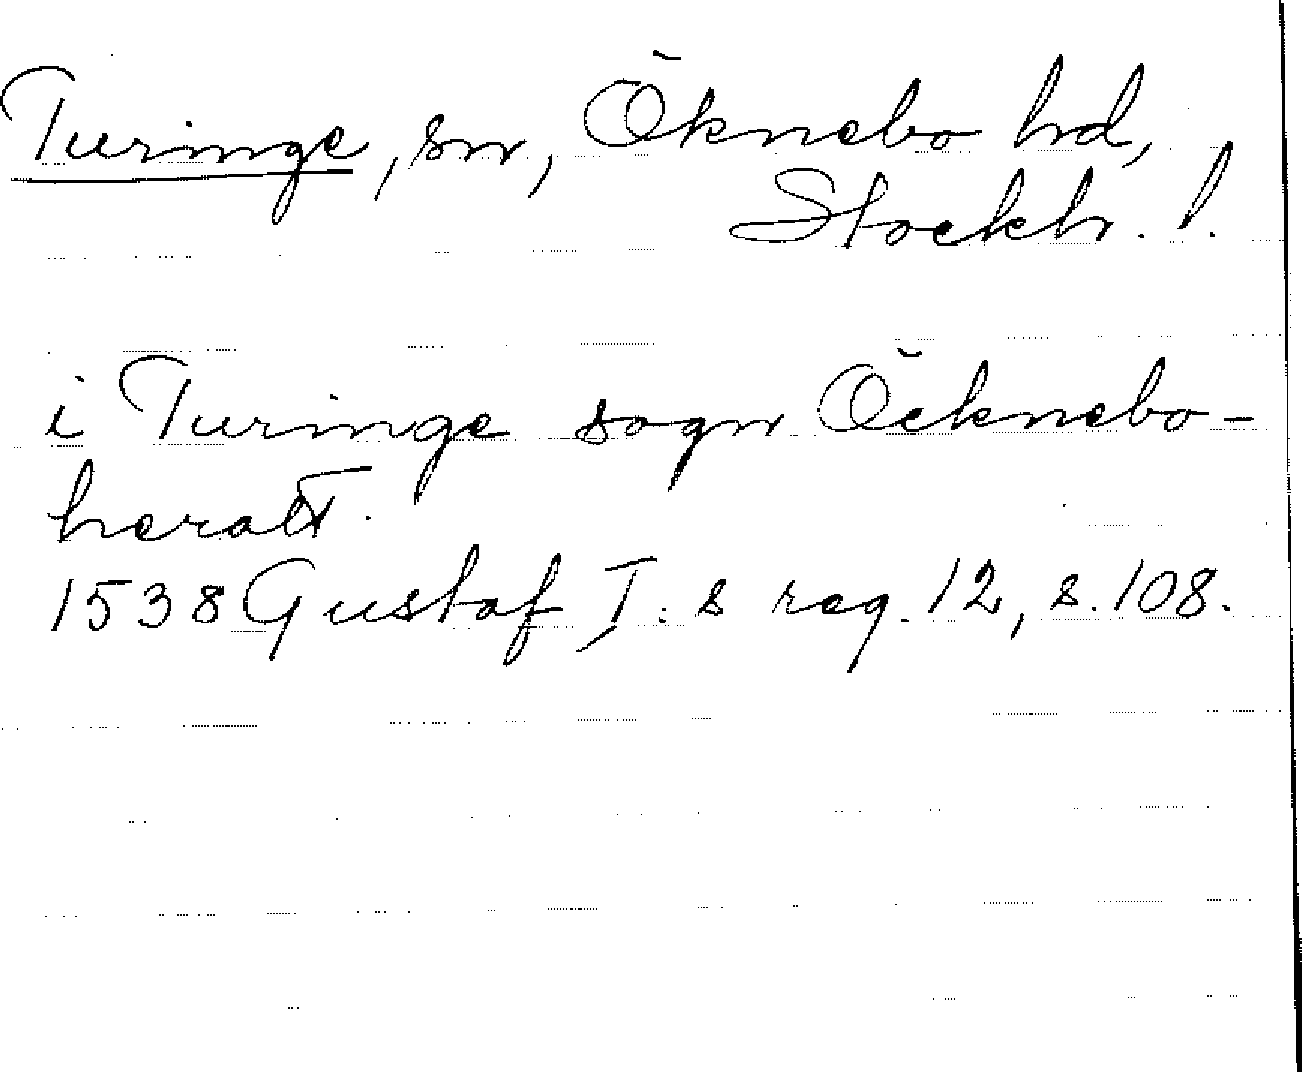 Turinge, sn, Öknebo hd,
Stockh. l.
i Turinge sogn Öcknebo-
heratt.
1538 Gustaf I: s reg. 12, s. 108.